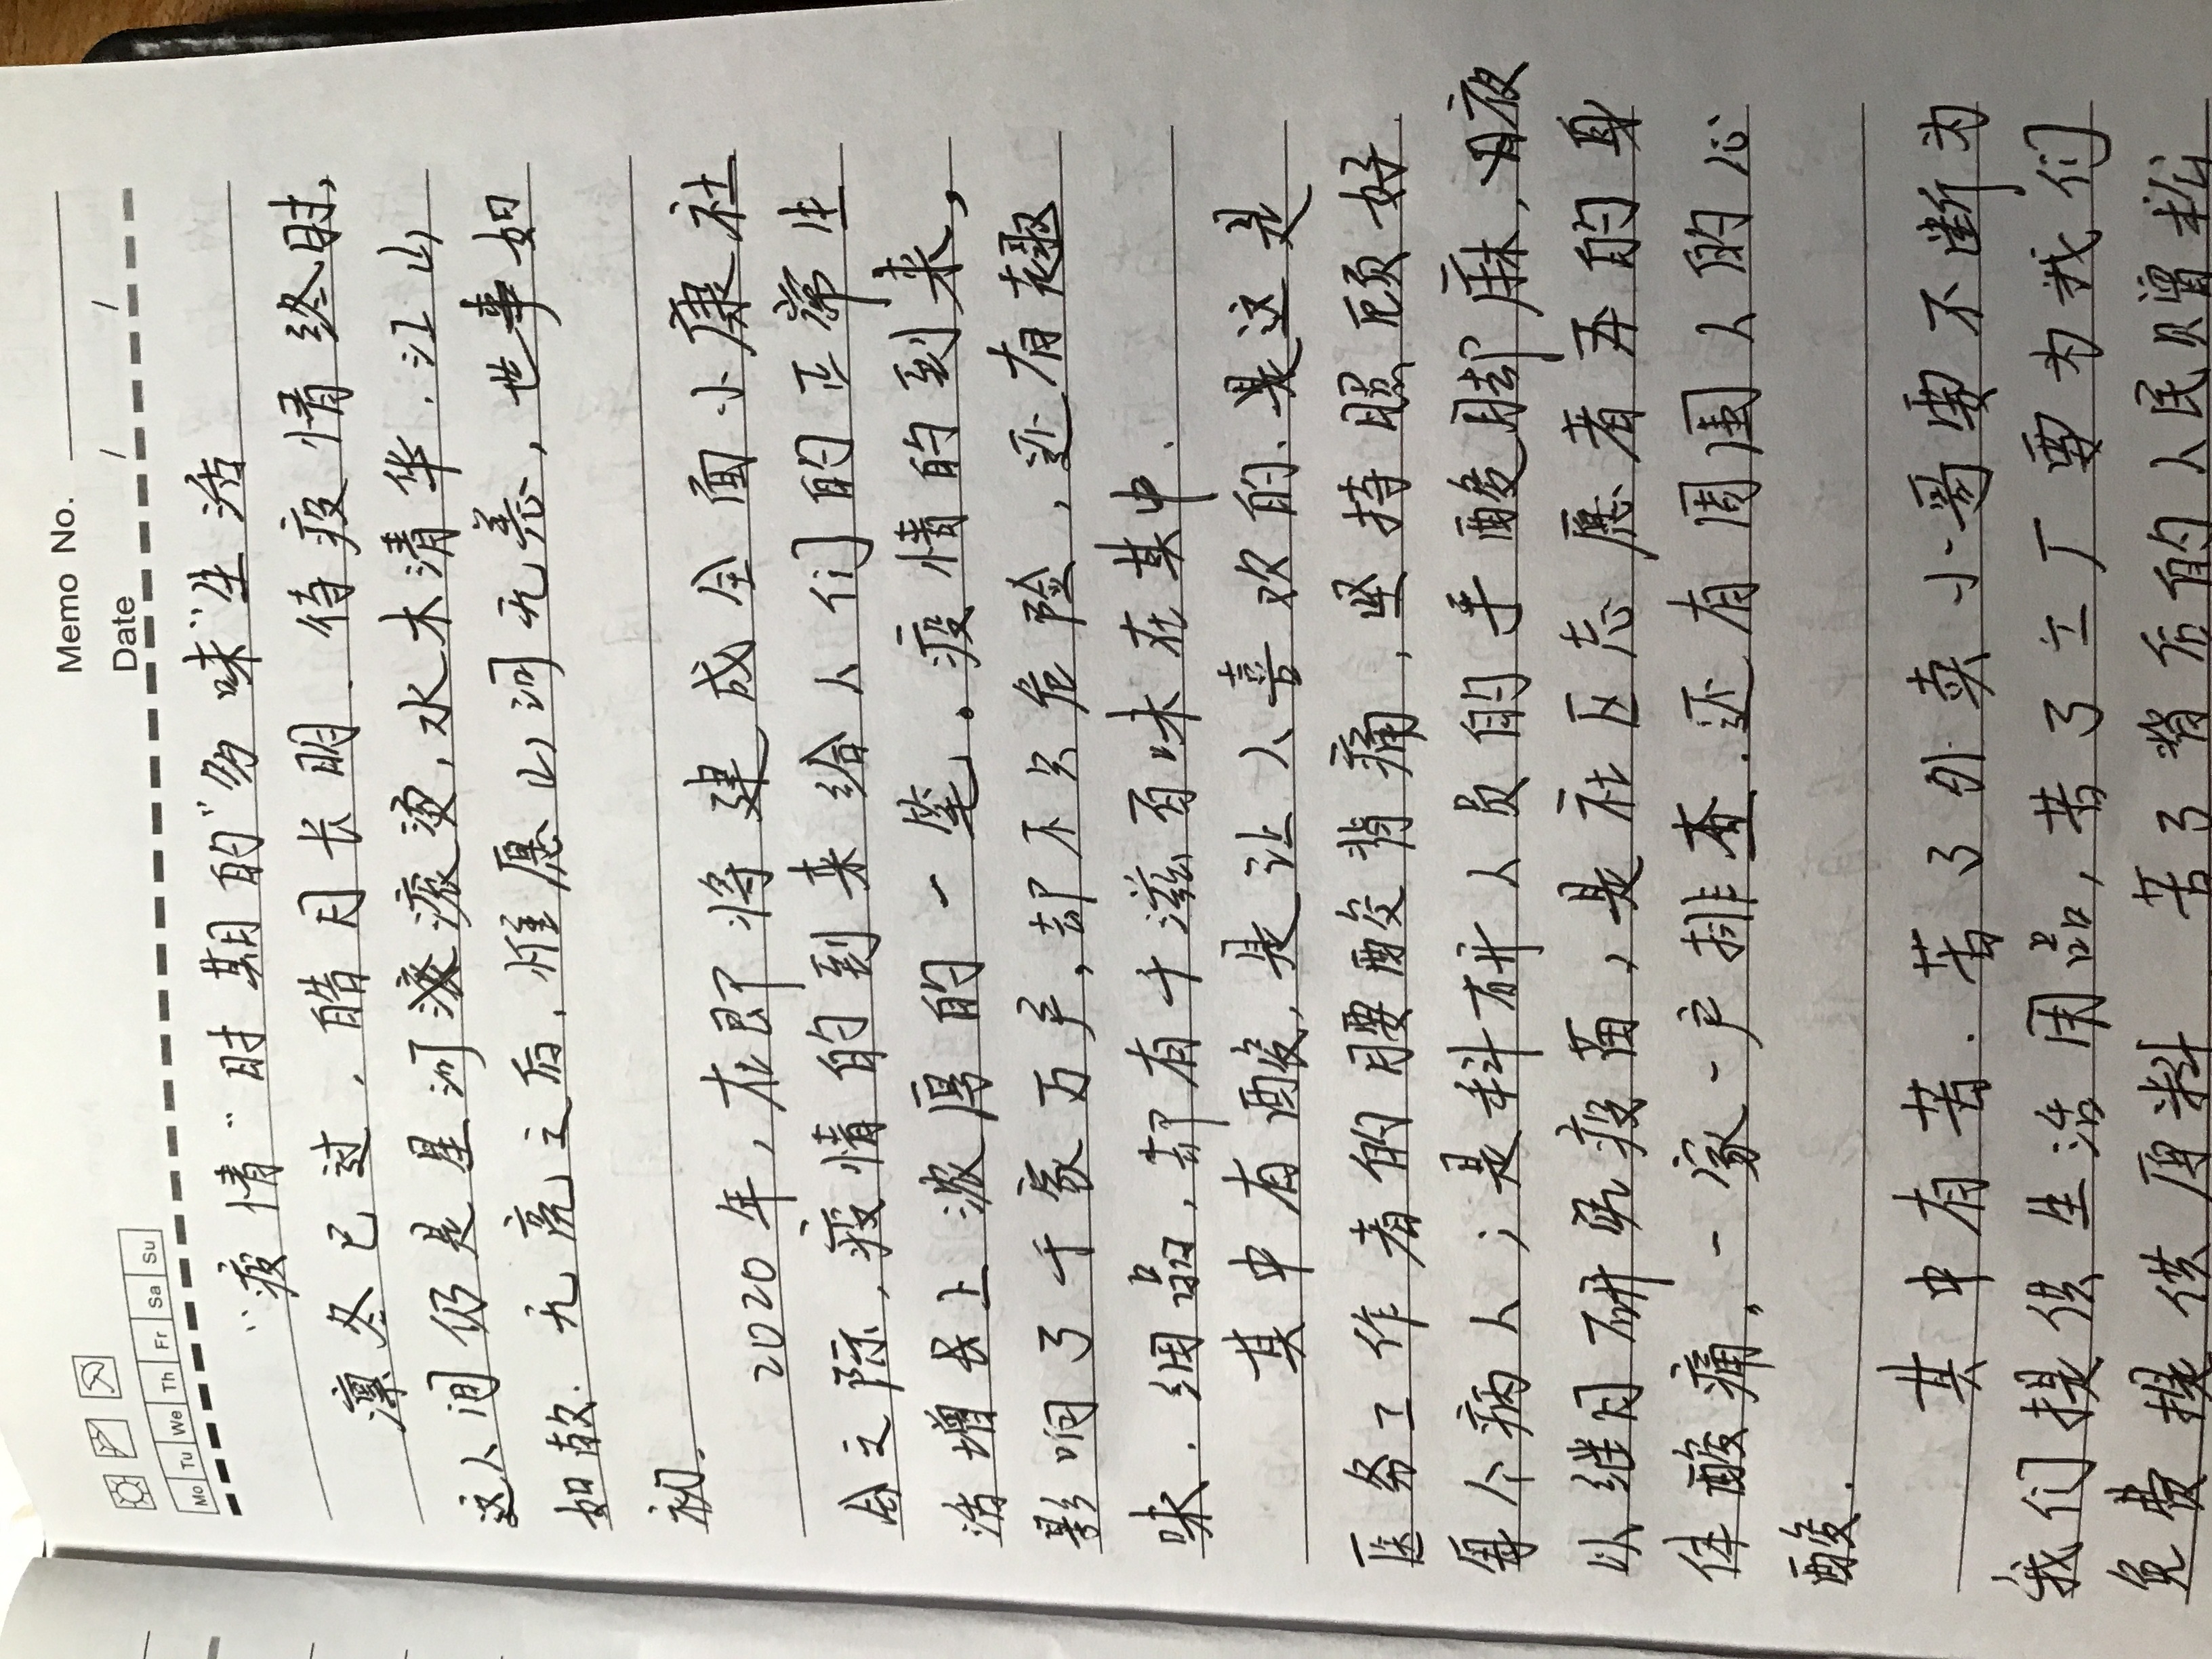 Memo No.
Mo Tu We Th Fr Sa Su
Date / /
“疫情”时期的“多味”生活
凛冬已过，皓月长明.待疫情终时，
这人间仍是星河滚滚烫，水木清华.江山
如故.无恙之后.惟愿山河无恙，世事如
初.
2020年，在即将建成全面小康社
会之际，疫情的到来给人们的正常生
活增长上浓厚的一笔。疫情的到来，
影响了千家万户，却不只危险，还有趣
味.细品，却有千滋百味在其中.
其中有酸，是让人喜欢的.是这是
医务工作者的腰酸背痛，坚持照顾好
每个病人；是科研人员的手酸脚麻，夜
以继日研究疫苗，是社区志愿者弄的身
体酸痛，一家一户排查.还有周围人的心
酸.
其中有苦.苦了外卖小哥要不断为
我们提供生活用品，苦了工厂要为我们
免费提供原料 苦了背后的人民默默